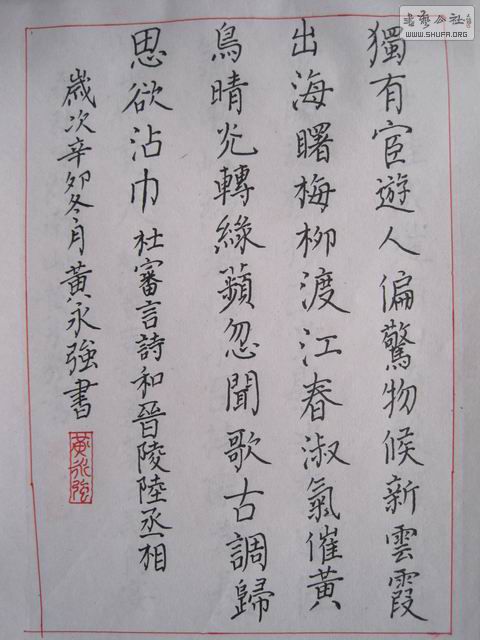 獨有宦遊人偏驚物候新雲霞
出海曙梅柳渡江春淑氣催黃
鳥晴光轉緣蘋忽聞歌古調歸
思欲沾巾 杜審言詩和晉陵陸丞相
歲次辛卯冬月黃永強書
黃永強
書藝公社
WWW.SHUFA.ORG